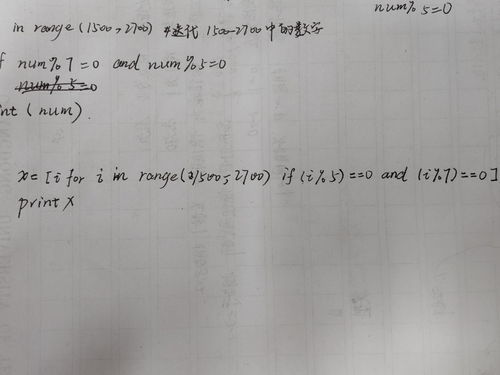 num% 5=0
in range(1500,2700) #迭代1500-2700中的数字
f num%7=0 and num%5=0
num% 5=0
int(num).
x=[i for i in range(1500,2700) if (i%5)==0 and (i%7)==0]
print x